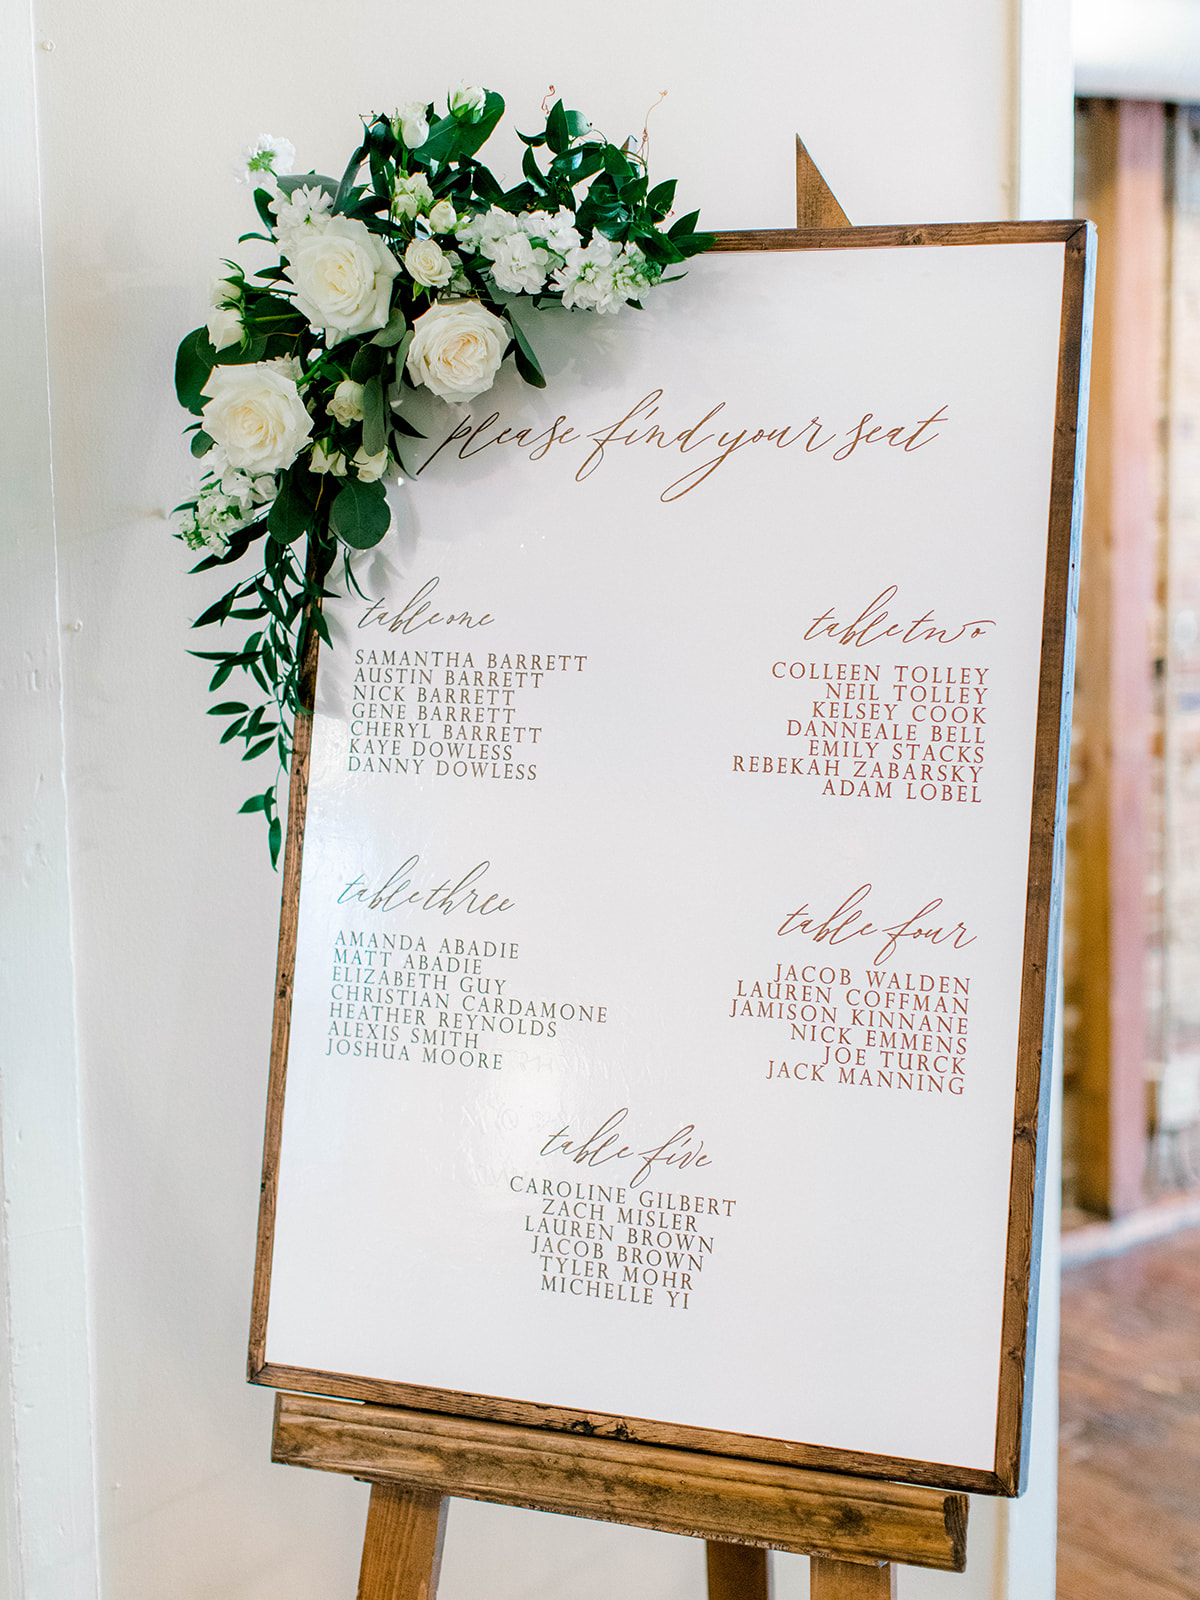 please find your seat
table one
SAMANTHA BARRETT
AUSTIN BARRETT
NICK BARRETT
GENE BARRETT
CHERYL BARRETT
KAYE DOWLESS
DANNY DOWLESS
table two
COLLEEN TOLLEY
NEIL TOLLEY
KELSEY COOK
DANNEALE BELL
EMILY STACKS
REBEKAH ZABARSKY
ADAM LOBEL
table three
AMANDA ABADIE
MATT ABADIE
ELIZABETH GUY
CHRISTIAN CARDAMONE
HEATHER REYNOLDS
ALEXIS SMITH
JOSHUA MOORE
table four
JACOB WALDEN
LAUREN COFFMAN
JAMISON KINNANE
NICK EMMENS
JOE TURCK
JACK MANNING
table five
CAROLINE GILBERT
ZACH MISLER
LAUREN BROWN
JACOB BROWN
TYLER MOHR
MICHELLE YI